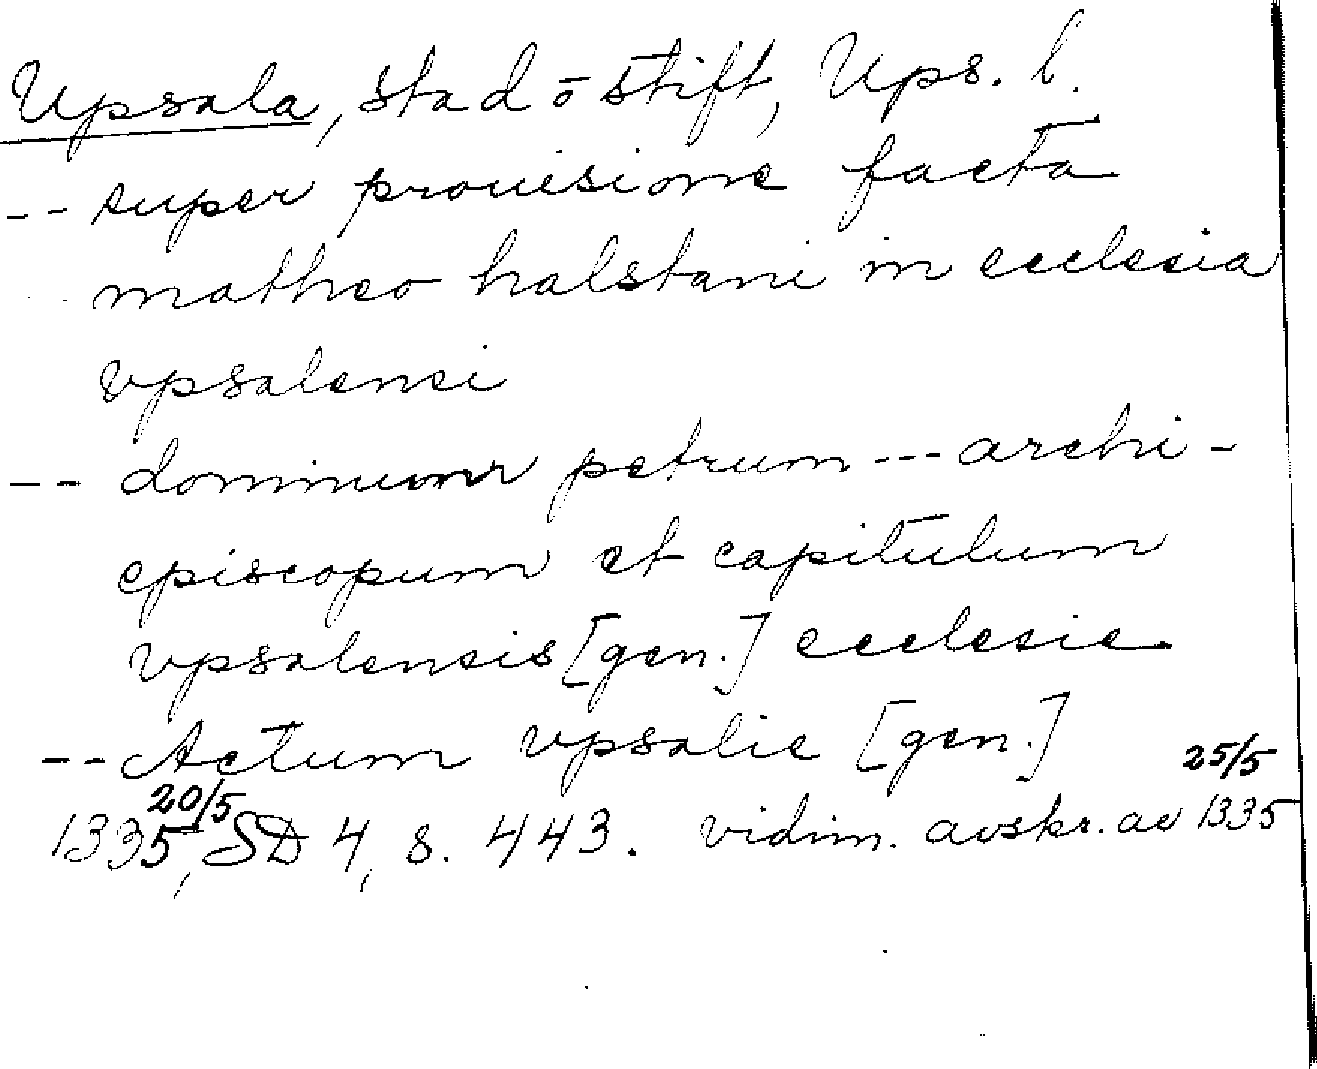 Upsala, stad ō stift, Ups. l.
-- super prouisione facta
-- matheo halstani in ecclesia
vpsalensi
-- dominum petrum --- archi-
episcopum et capitulum
vpsalensis [gen.] ecclesie
-- Actum vpsalie [gen.]
1335 20/5, SD 4, s. 443. vidim. avskr. av 25/5 1335